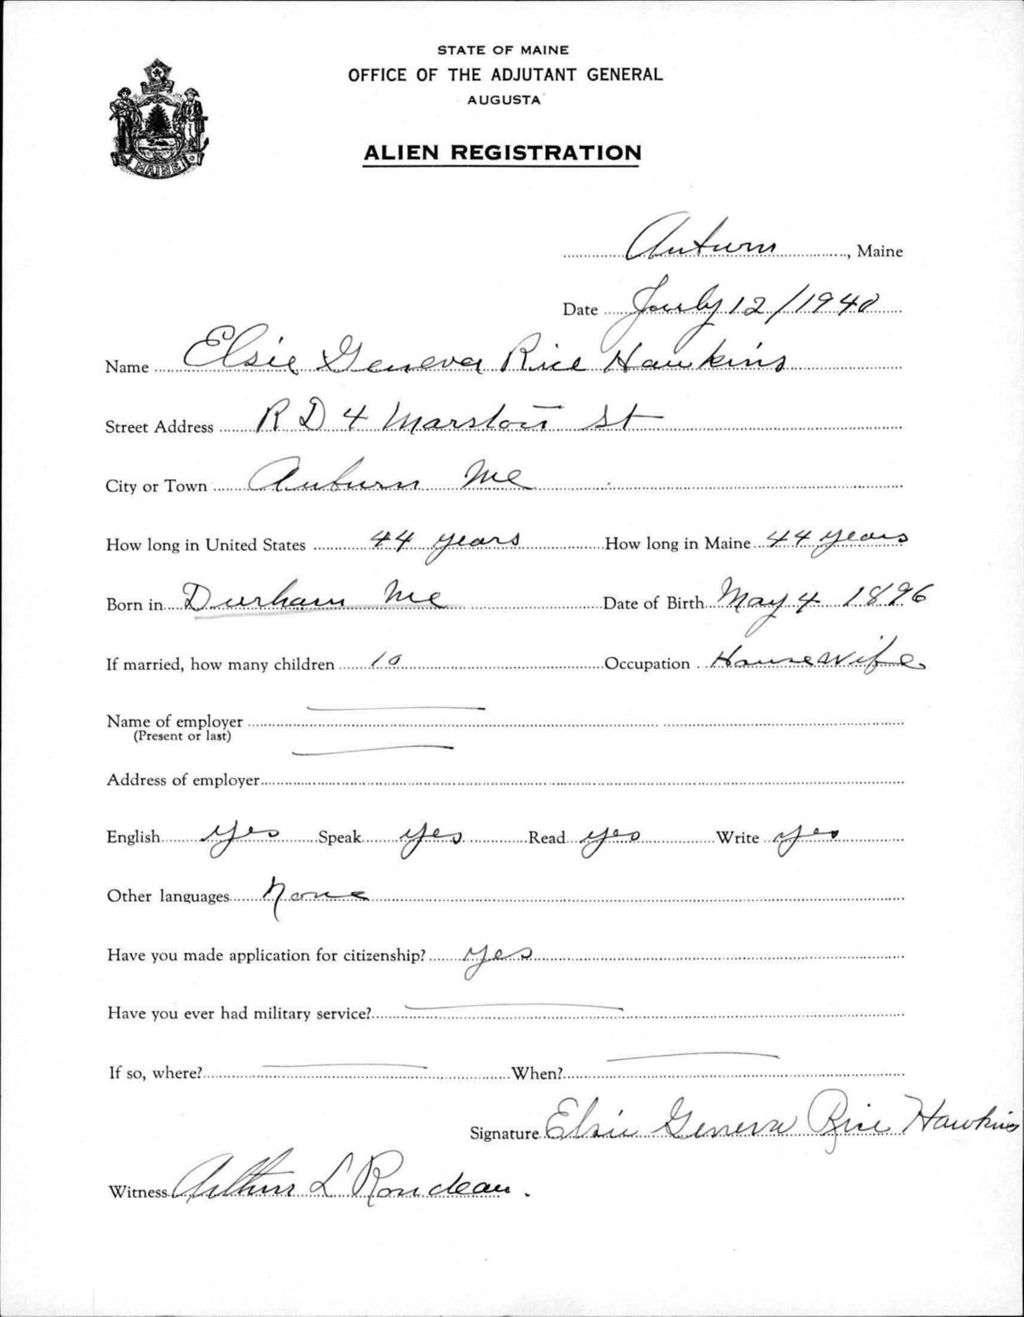 STATE OF MAINE
OFFICE OF THE ADJUTANT GENERAL
AUGUSTA
ALIEN REGISTRATION
MAINE
Auburn, Maine
Date July 12/1940
Name Elsie Geneva Rice Hawkins
Street Address R D 4 Marston St
City or Town Auburn Me
How long in United States 44 years How long in Maine 44 years
Born in Durham Me Date of Birth May 4 1896
If married, how many children 10 Occupation Housewife
Name of employer
(Present or last)
Address of employer
English yes Speak yes Read yes Write yes
Other languages None
Have you made application for citizenship? yes
Have you ever had military service?
If so, where? When?
Signature Elsie Geneva Rice Hawkins
Witness Arthur L Rondeau.